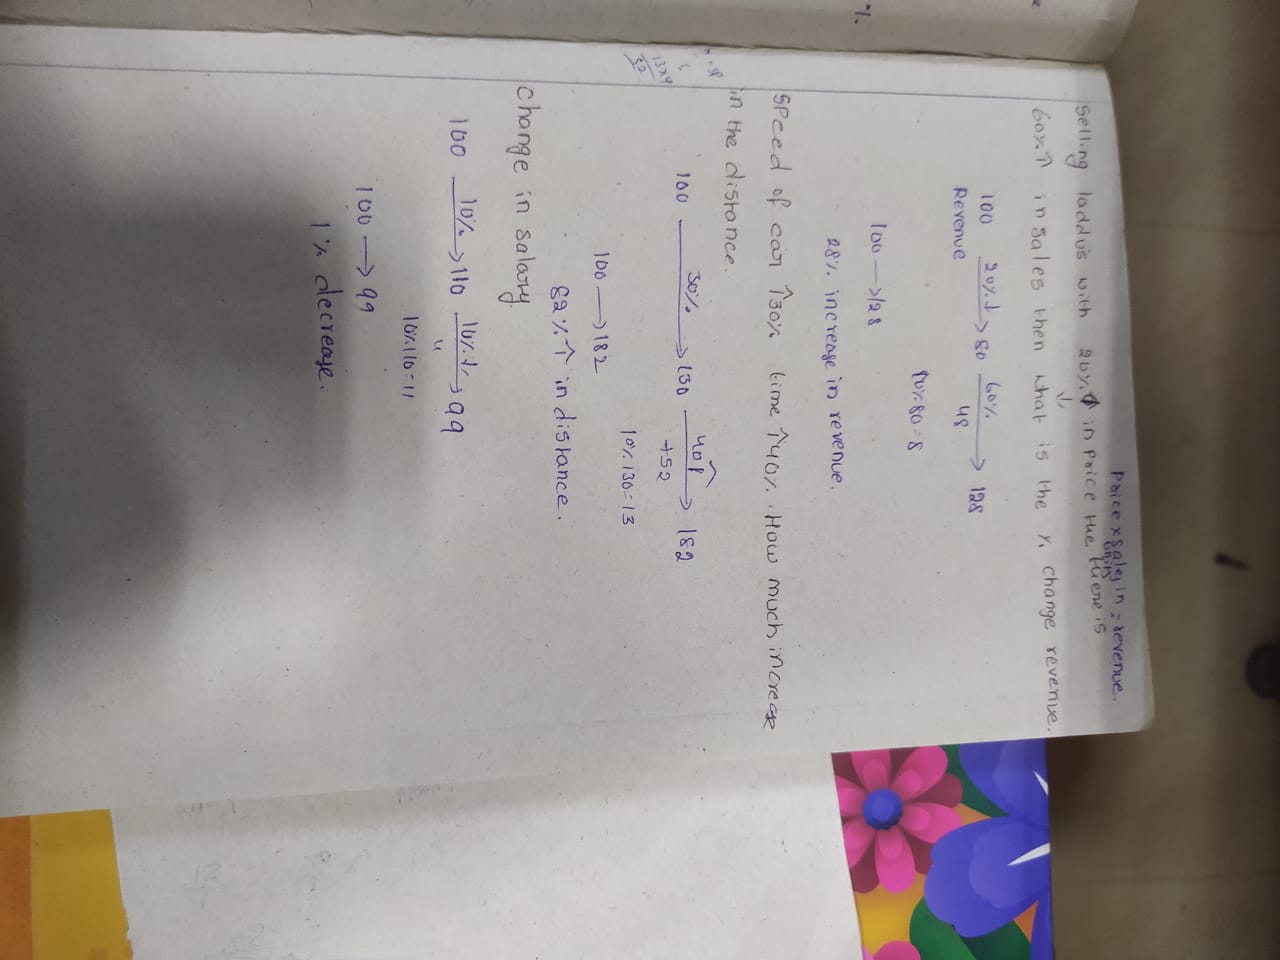 Price x Sales in = revenue.
units
Selling laddus with 20%↓ in price the there is
60%↑ in sales then what is the % change revenue.
100 20%↓→ 80 60%→ 128
Revenue 48
10% 80 = 8
100 → 128
28% increase in revenue.
Speed of car ↑30% time ↑40%. How much increase
in the distance.
100 30%→ 130 40↑→ 182
+52
10% 130 = 13
100 → 182
82%↑ in distance.
Change in salary
100 10%→ 110 10%↓→ 99
11
10% 110 = 11
100 → 99
1% decrease.